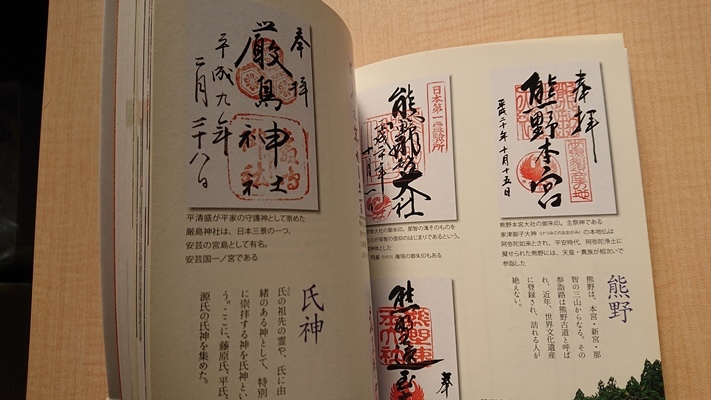 奉拝
厳島神社
平成九年
二月二十八日
平清盛が平家の守護神として崇めた
厳島神社は、日本三景の一つ、
安芸の宮島として有名。
安芸国一ノ宮である
氏神
氏の祖先の霊や、氏に由
緒のある神として、特別
に崇拝する神を氏神とい
う。ここに、藤原氏、平氏、
源氏の氏神を集めた。
奉拝
熊野本宮
平成二十年十月十五日
熊野本宮大社の御朱印。主祭神である
家津御子大神(けつみこのおおかみ)の本地仏は
阿弥陀如来とされ、平安時代、阿弥陀浄土に
擬せられた熊野には、天皇・貴族が相次いで
参詣した
日本第一
大社
大社の御朱印。那智の滝そのものを
が那智の信仰のはじまりであるという。
権現の御朱印もある
熊野
熊野は、本宮・新宮・那
智の三山からなる。その
参詣路は熊野古道と呼ば
れ、近年、世界文化遺産
に登録され、訪れる人が
絶えない。
奉
熊野速玉